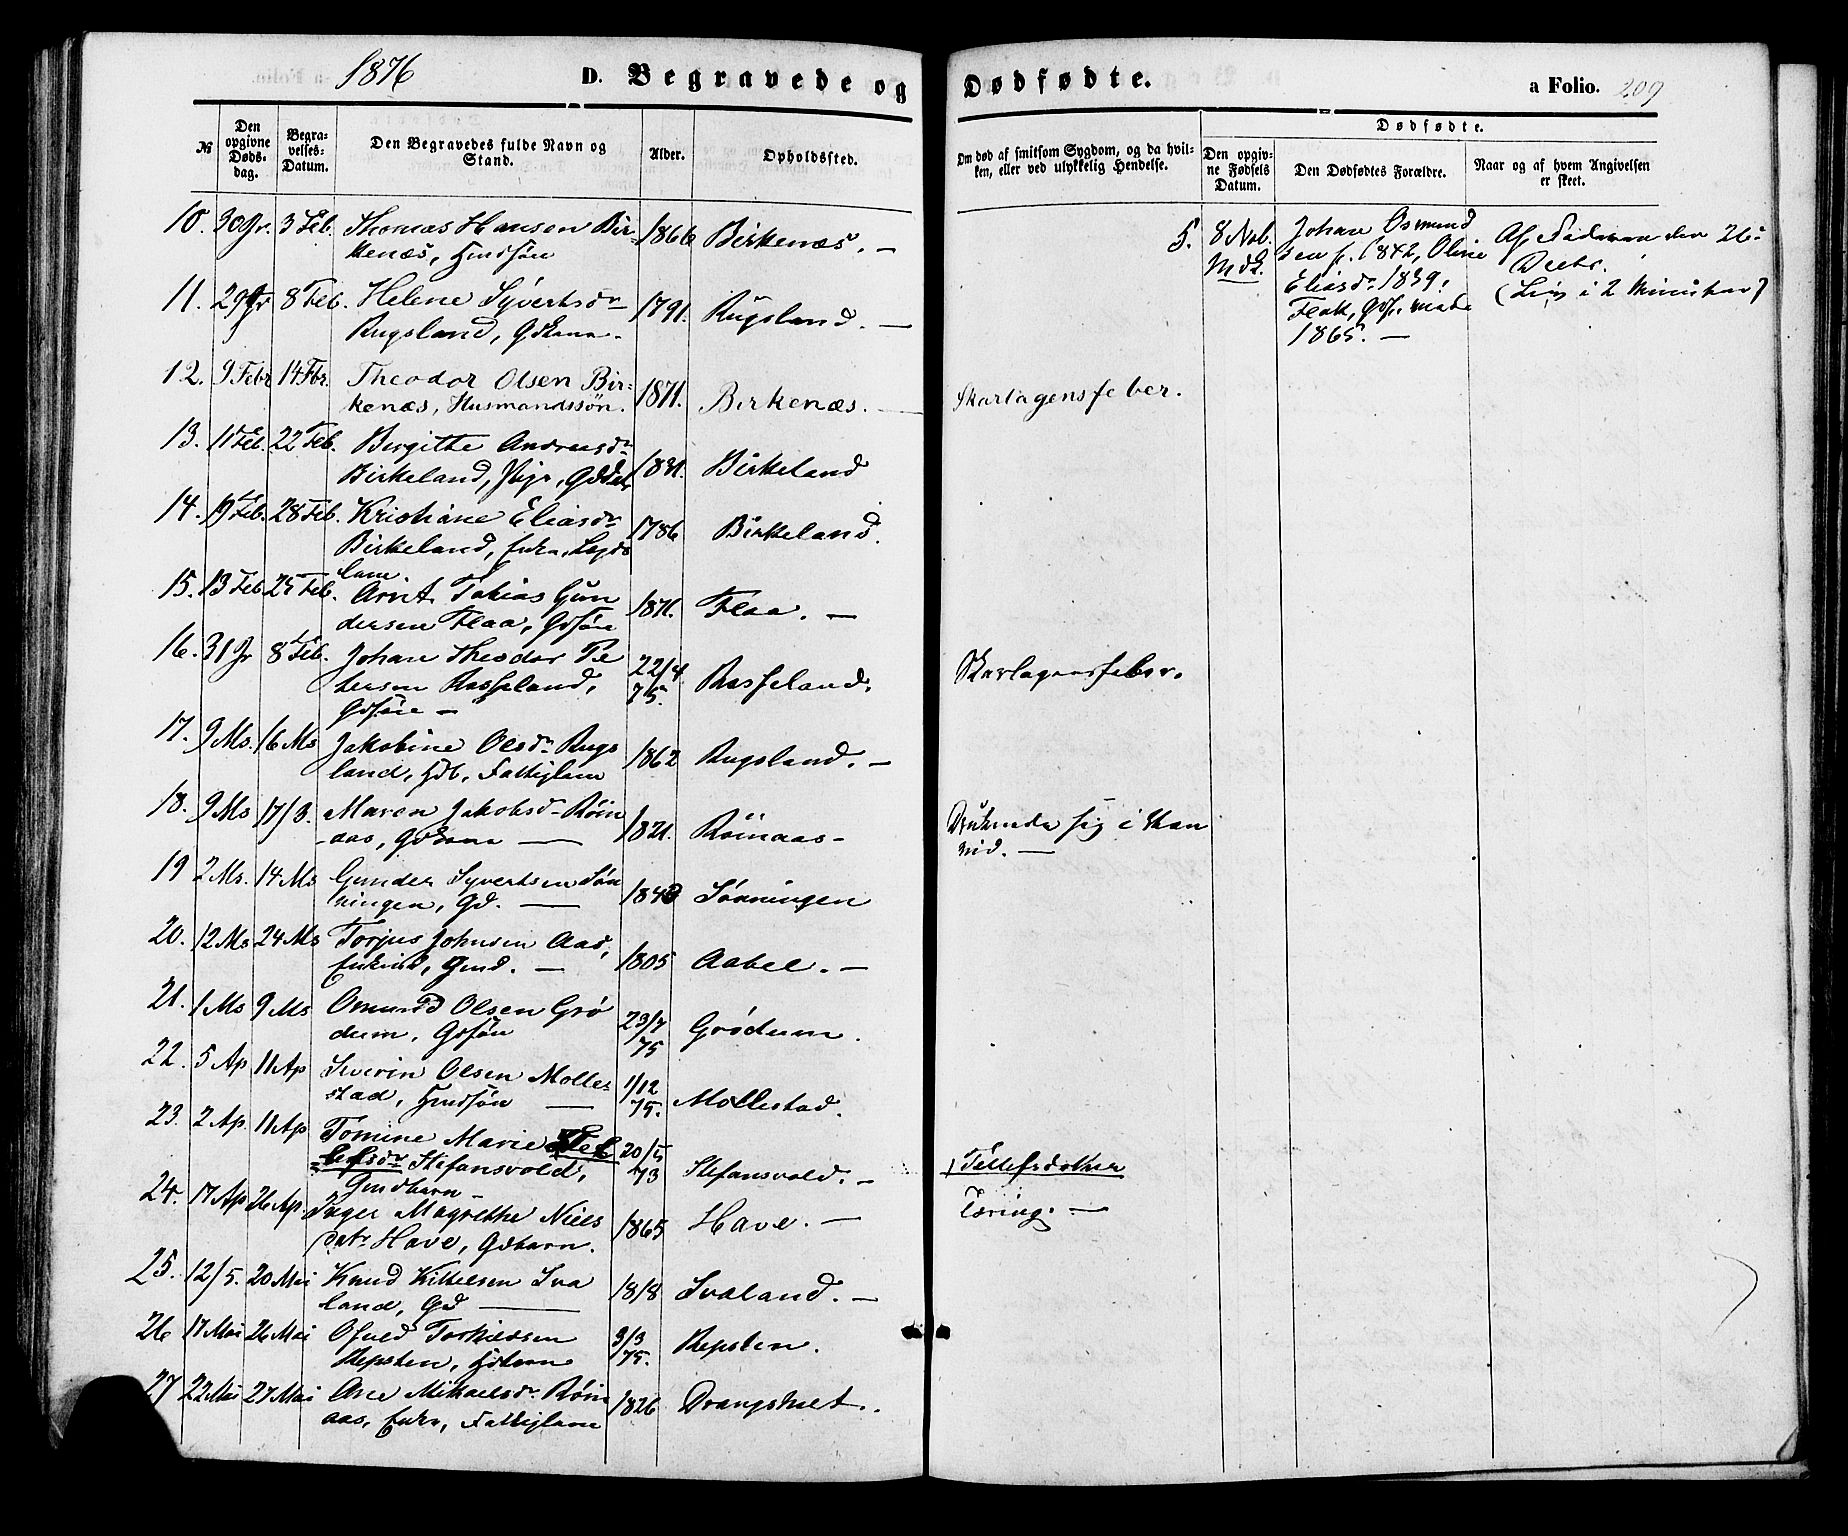 1876
D. Begravede og Dødfødte.
a Folio. 209
№
Den opgivne Døds-dag.
Begra-velses-Datum.
Den Begravedes fulde Navn og Stand.
Alder.
Opholdssted.
Om død af smitsom Sygdom, og da hvil-
ken, eller ved ulykkelig Hendelse.
Dødfødte.
Den opgiv-
ne Fødsels
Datum.
Den Dødfødtes Forældre.
Naar og af hvem Angivelsen
er skeet.
10. 30 Jr. 3 Feb. Thomas Hansen Bir
kenæs, Hmdsøn 1866 Birkenæs. —
5. 8 Nob. Johan Osmund
sen f. 1842, Oline
Eliasdr 1839,
Flak, gift
1865. —
Af Faderen den 26
Decbr.
(Liv i 2 Minuter)
11. 29 Jr 8 Feb. Helene Syvertsdr
Rugsland, Gdkona. 1791. Rugsland. —
12. 9 Febr 14 Fbr. Theodor Olsen Bir-
kenæs, Husmandssøn. 1871. Birkenæs. — Skarlagensfeber.
13. 11 Feb. 22 Feb. Bergitte Andreasdr
Birkeland, Pige, Gddatr 1831. Birkeland
14. 19 Feb. 28 Feb. Kristiane Eliasdr
Birkeland, Enke, Lægds
lem. 1786 Birkeland.
15. 13 Feb. 25 Feb. Arnt Tobias Gun
dersen Flaa, Gdsøn 1871. Flaa. —
16. 31 Jr 8 Feb. Johan Theodor Pe
tersen Rasseland,
Gdsøn — 22/4 75. Rasseland. Skarlagensfeber.
17. 9 Ms. 16 Ms Jakobine Olsdr Rugs
land, Fattiglem 1862 Rugsland. —
18. 9 Ms 17/3. Maren Jakobsdr Röin
aas, Gdkona — 1821. Röinaas — Druknede sig i Van
vid. —
19 2 Ms. 14 Ms Gunder Syvertsen Søn
ningen, Gd. — 1840 Sönningen
20. 12 Ms 24 Ms Torjus Johnsen Aas,
Enkem, Gmd. — 1805 Aabel. —
21. 1 Ms 9 Ms Omund Olsen Grö
dum, Gdsøn 23/7 75 Grödum.
22. 5 Ap 11 Ap Severin Olsen Molle-
stad, Hmdsøn — 1/12 75. Mollestad.
23. 2 Ap. 11 Ap Tomine Marie Tel
lefsdr Stefansvold,
Gmdbarn — 20/5 73 Stefansvold. — Tellefsdatter
24. 17 Ap 26 Ap. Inger Magrethe Niels
datr Have, Gdbarn. 1865 Have. — Tæring. —
25. 12/5. 20 Mai Knud Kittelsen Sva
land, Gd — 1818 Svaland. —
26 17 Mai 26 Mai Osuld Torkildsen
Repsten, Hdbarn 3/3 75. Repsten.
27 22 Mai 27 Mai Ane Mikaelsdr Röin
aas, Enke, Fattiglem 1826 Drangsholt.